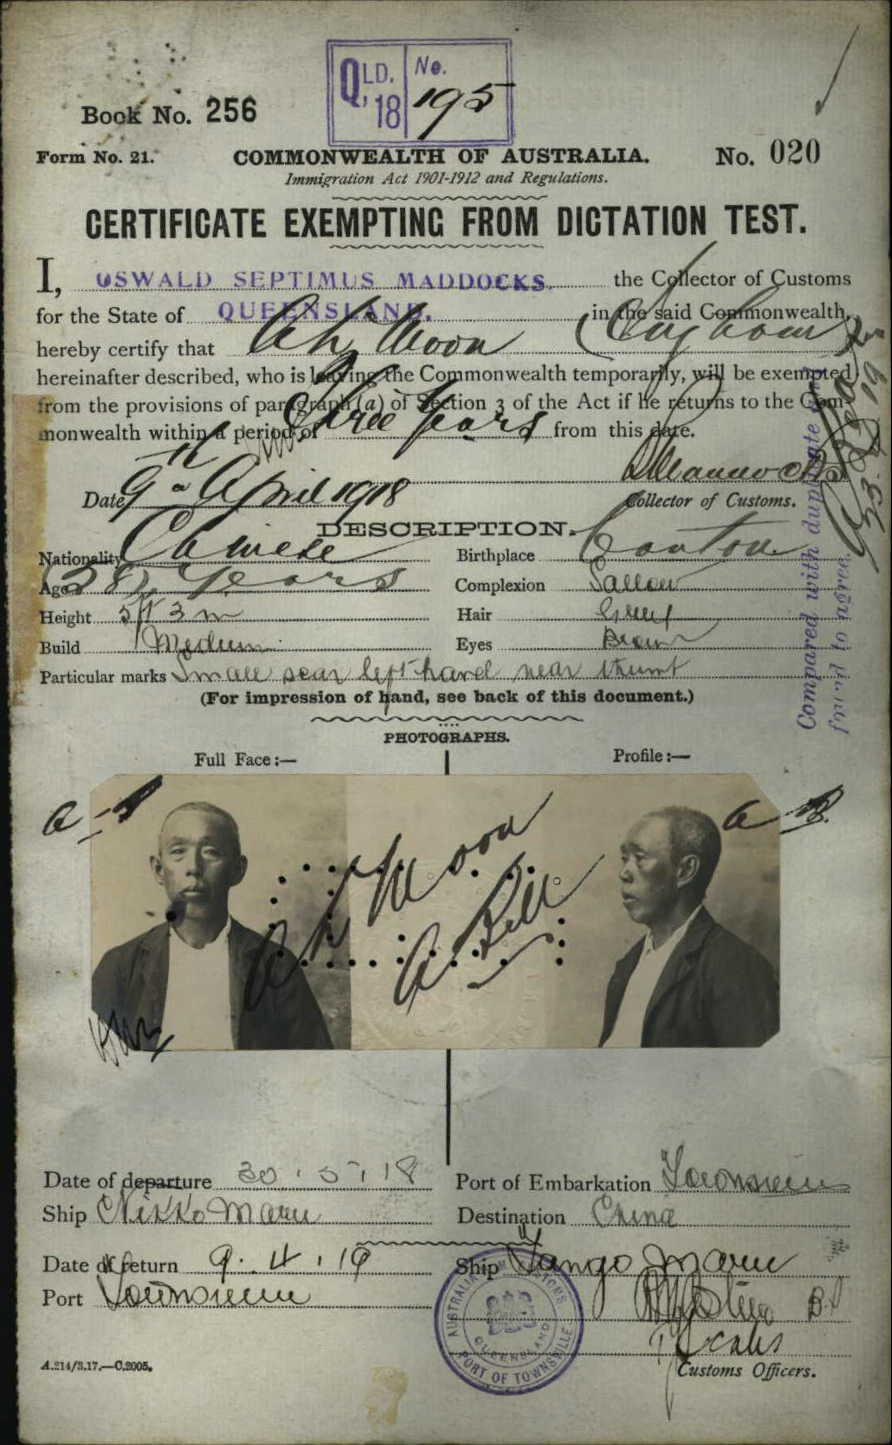 QLD. 18 No. 195
Book No. 256
Form No. 21. COMMONWEALTH OF AUSTRALIA. No. 020
Immigration Act 1901-1912 and Regulations.
CERTIFICATE EXEMPTING FROM DICTATION TEST.
I, OSWALD SEPTIMUS MADDOCKS. the Collector of Customs
for the State of QUEENSLAND. in the said Commonwealth,
hereby certify that Ah Moon (Ingham)
hereinafter described, who is leaving the Commonwealth temporarily, will be exempted
from the provisions of paragraph (a) of Section 3 of the Act if he returns to the Com-
monwealth within a period of Three years from this date.
Date 9th April 1918 Collector of Customs.
DESCRIPTION.
Nationality Chinese Birthplace Canton
Age years Complexion Sallow
Height 5ft 3 in Hair Grey
Build Medium Eyes Brown
Particular marks Small scar left hand near thumb
(For impression of hand, see back of this document.)
Compared with duplicate and
found to agree.
PHOTOGRAPHS.
Full Face:— Profile:—
Ah Moon
A. Bell
Date of departure 30.5.18 Port of Embarkation Townsville
Ship Nikko Maru Destination China
Date of return 9.4.19 Ship Tango Maru
Port Townsville
QUEENSLAND
PORT OF TOWNSVILLE
A.214/3.17.—C.2005. Customs Officers.